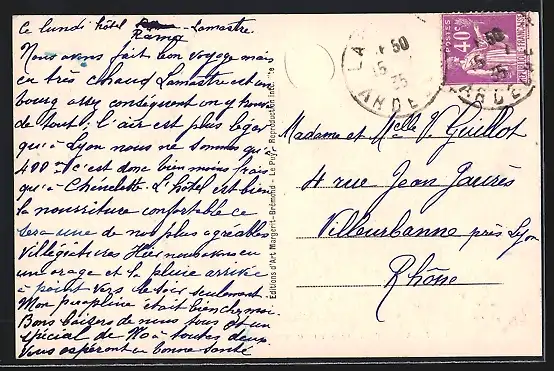 Ce lundi hôtel Lamastre.
Rama
Nous avons fait bon voyage mais
eu très chaud Lamastre est un
bourg assez conséquent on y trouve
de tout; l'air est plus léger
qu'à Lyon nous ne sommes qu'à
400m c'est donc bien moins frais
qu'à Chenelette. L'hôtel est bien
la nourriture confortable ce
sera une de nos plus agréables
villégiatures Hier nous avons eu
un orage et la pluie arrive
à point vers le soir seulement.
Mon était bien chez moi.
Bons baisers de nous tous et un
spécial de à toutes deux
Vous espérant en bonne santé
Editions d'Art Margerit-Brémond - Le Puy - Reproduction interdite
50
35
ARDE
POSTES
40c
Madame et Melle Ve Guillot
4 rue Jean Jaurès
Villeurbanne près Lyon
Rhône